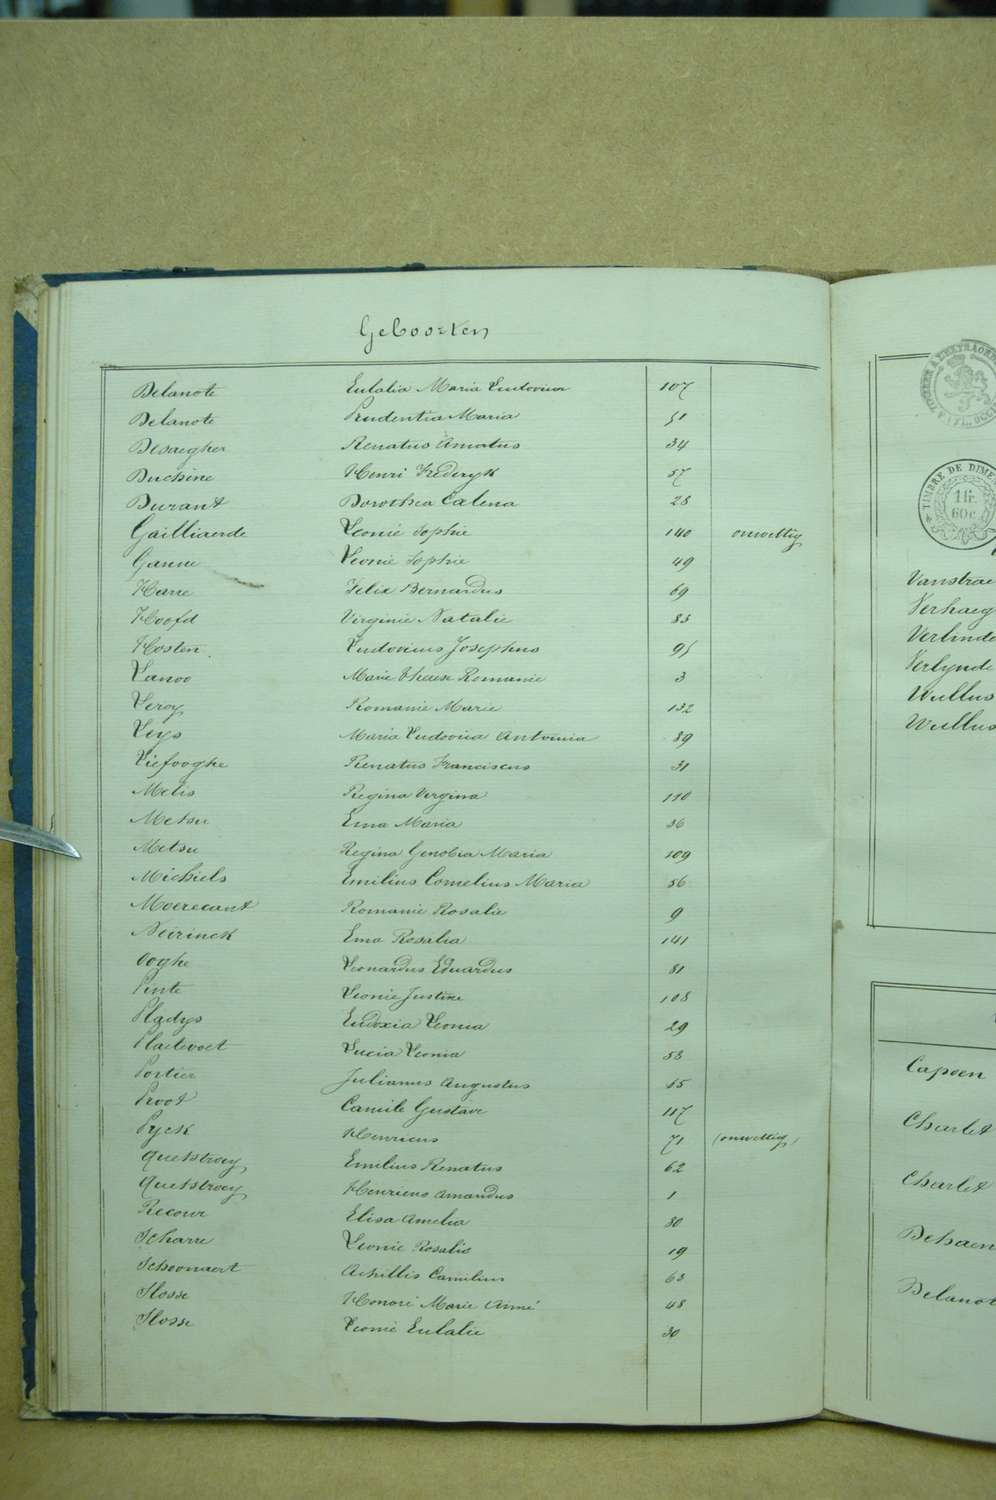 Geboorten
Delanote Eulalia Maria Ludovica 107
Delanote Prudentia Maria 51
Desaegher Renatus Amatus 34
Duchine Henri Frederyk 57
Durant Dorothea Calena 28
Gailliaerde Leonie Sophie 140 onwettig
Ganne Leonie Sophie 49
Hane Felix Bernardus 69
Hoofd Virginie Natalie 83
Hosten Ludovicus Josephus 95
Lanoo Marie Therese Romanie 3
Leroy Romanie Marie 132
Leys Maria Ludovica Antonia 89
Liefooghe Renatus Franciscus 31
Melis Regina Virgina 110
Metsu Ema Maria 36
Metsu Regina Genobia Maria 109
Michiels Emilius Cornelius Maria 56
Moerecant Romanie Rosalie 9
Neirinck Ema Rosalia 141
Ooghe Leonardus Eduardus 81
Pinte Leonie Justine 108
Pladys Eudoxia Leonia 29
Platevoet Lucia Leonia 53
Portier Julianus Augustus 65
Proot Camile Gustave 117
Pyck Henricus 71 (onwettig)
Quetstroey Emilius Renatus 62
Quetstroey Henricus Amandus 1
Recour Elisa Amelia 80
Scharre Leonie Rosalie 19
Schoonaert Achillis Camilius 63
Slosse Honoré Marie Aimé 48
Slosse Leonie Eulalie 30
TIMBRE DE DIME
1 fr.
60 c.
Vanstrae
Verhaeg
Verlinde
Verlynde
Wullus
Wullus
Capoen
Charlet
Charlet
Dehaen
Delanot